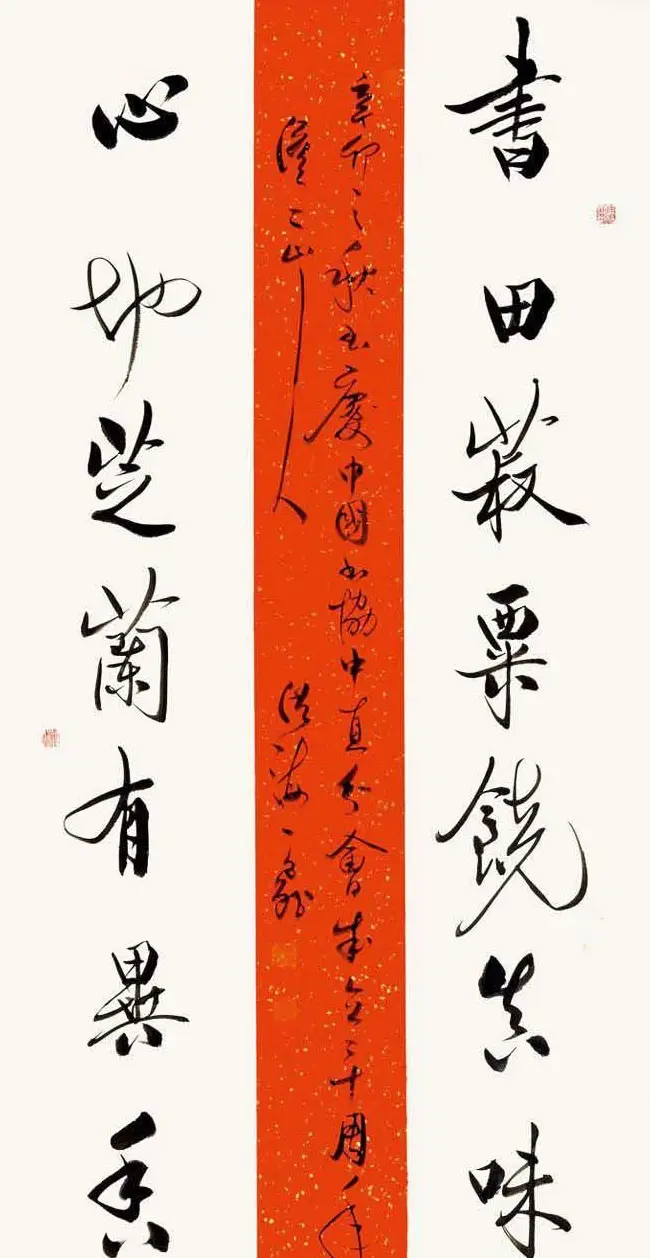 書田菽粟饒真味
辛卯之秋書慶中國書協中直分會成立二十周年
山人 洪海
心地芝蘭有異香